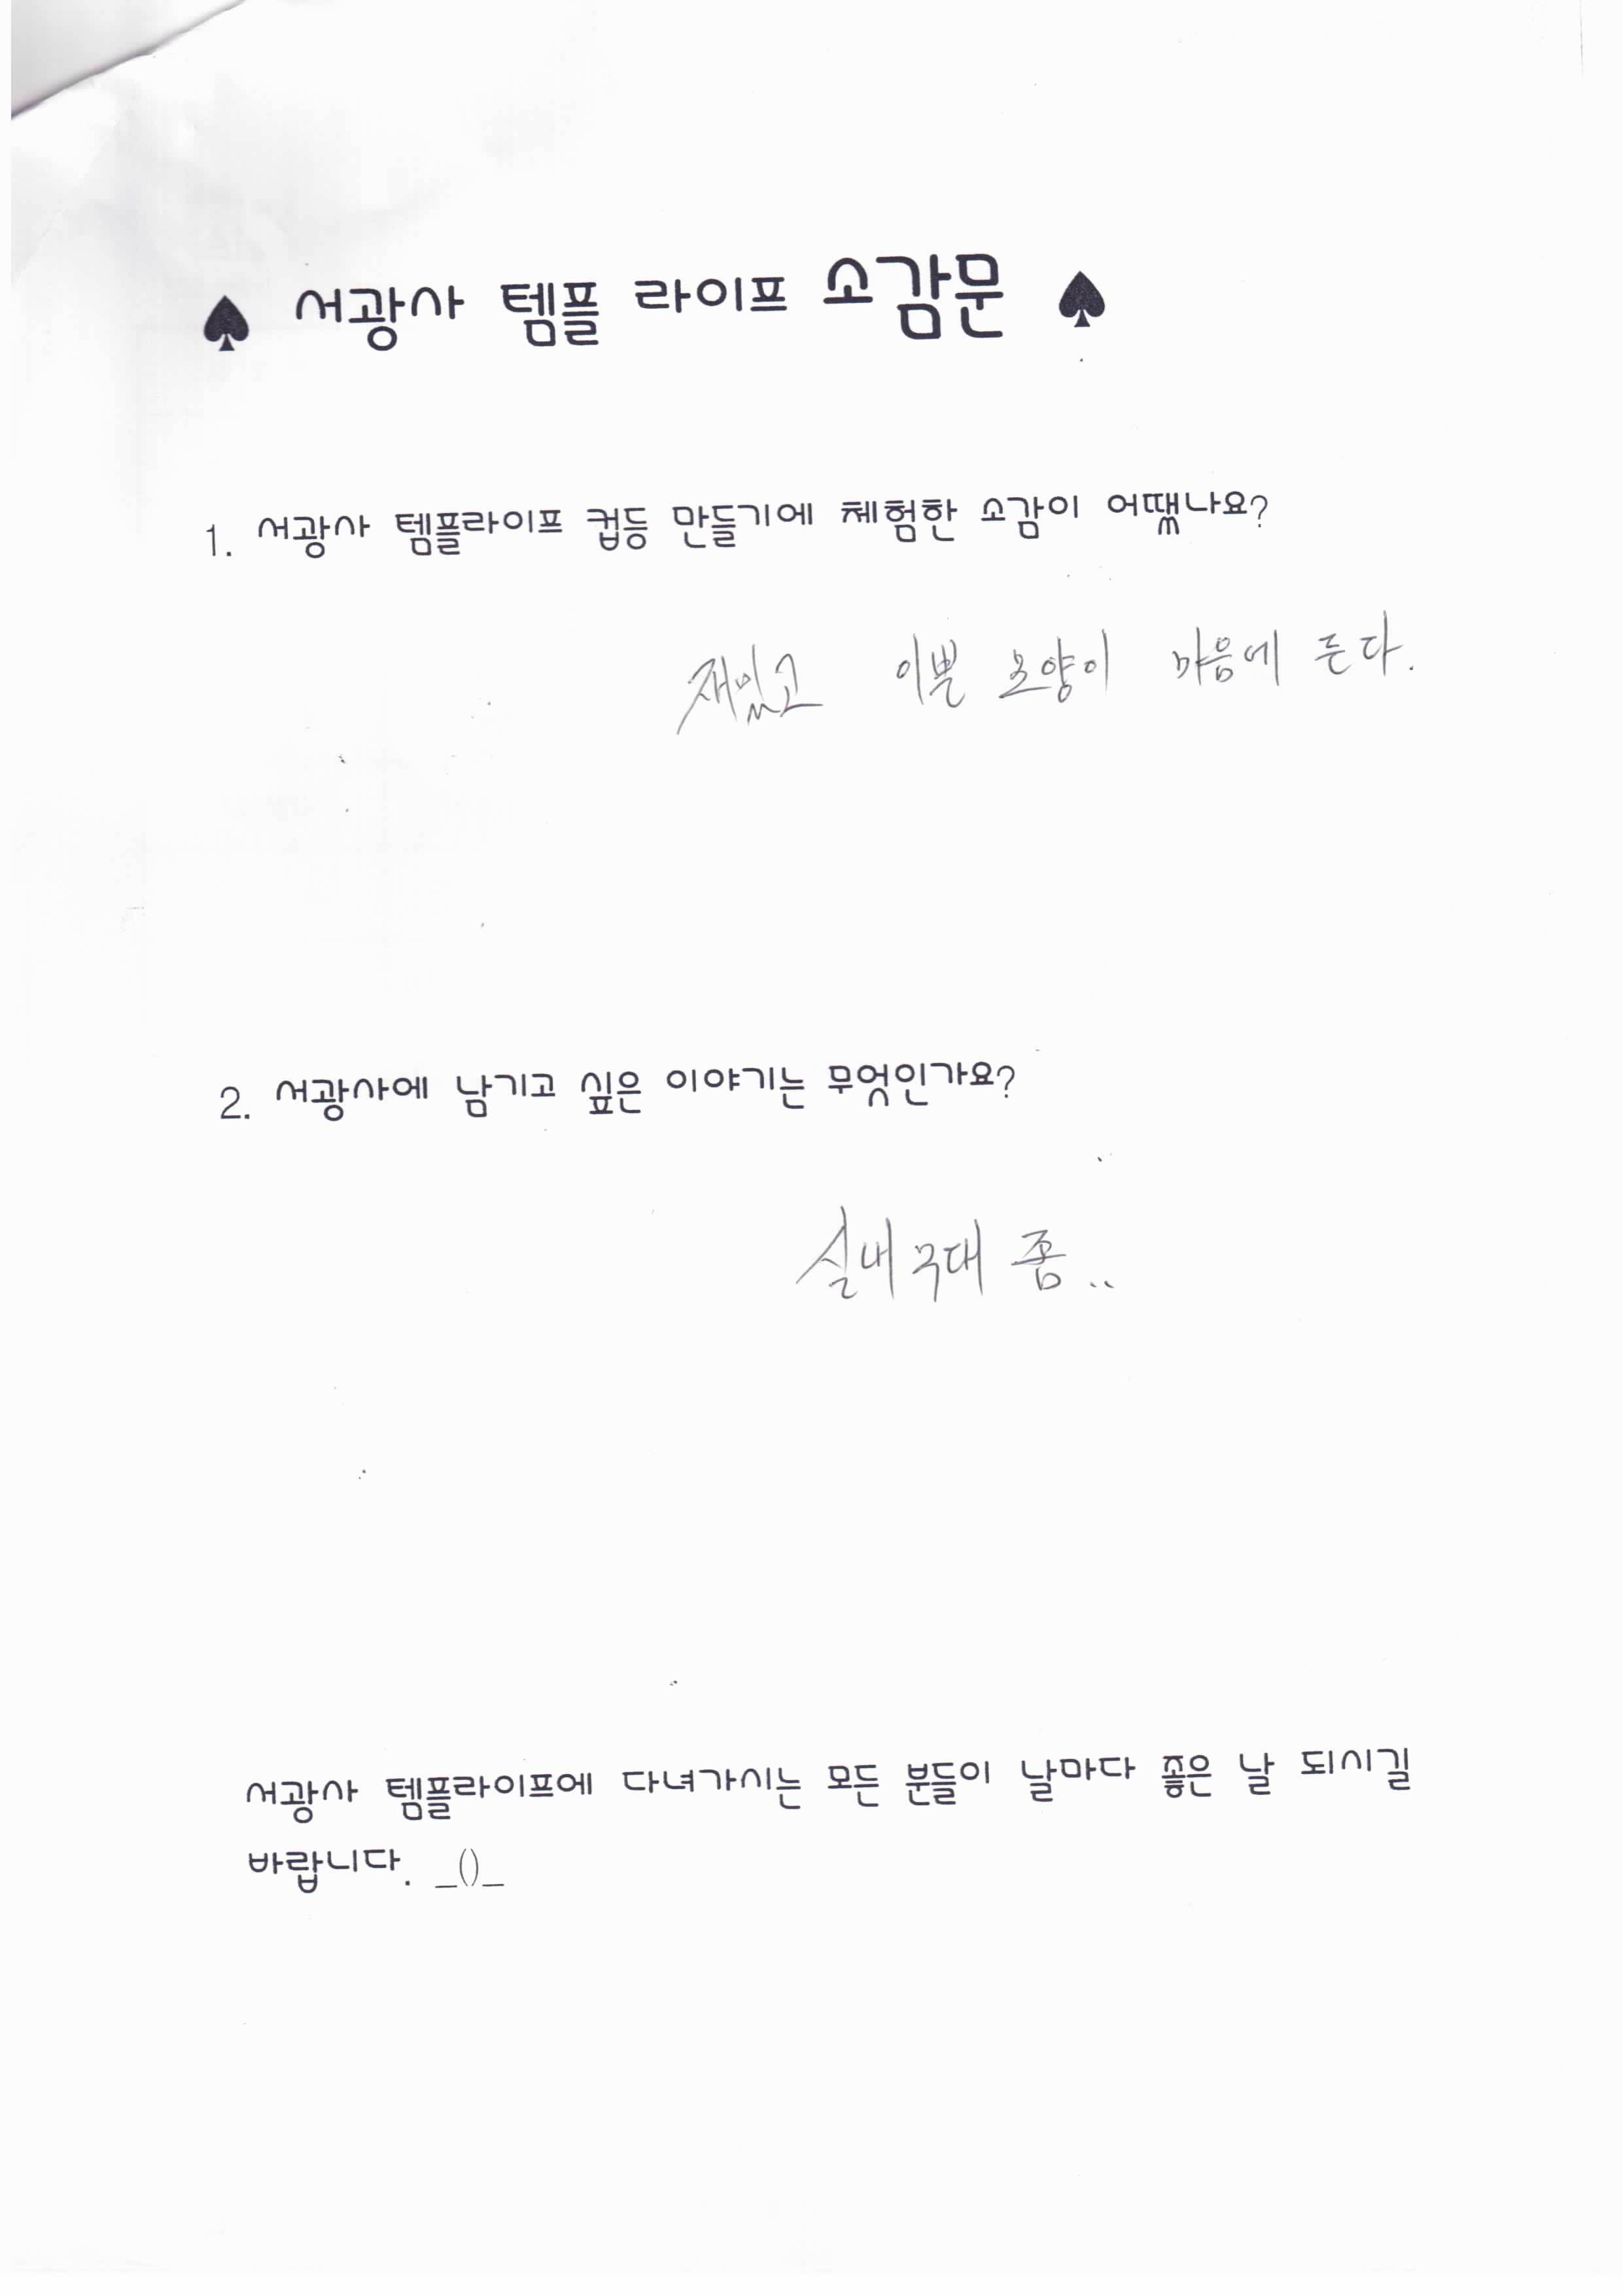 ♠ 서광사 템플 라이프 소감문 ♠
1. 서광사 템플라이프 컵등 만들기에 체험한 소감이 어땠나요?
재밌고 이쁜 모양이 마음에 든다.
2. 서광사에 남기고 싶은 이야기는 무엇인가요?
실내 좀..
서광사 템플라이프에 다녀가시는 모든 분들이 날마다 좋은 날 되시길
바랍니다. _()_